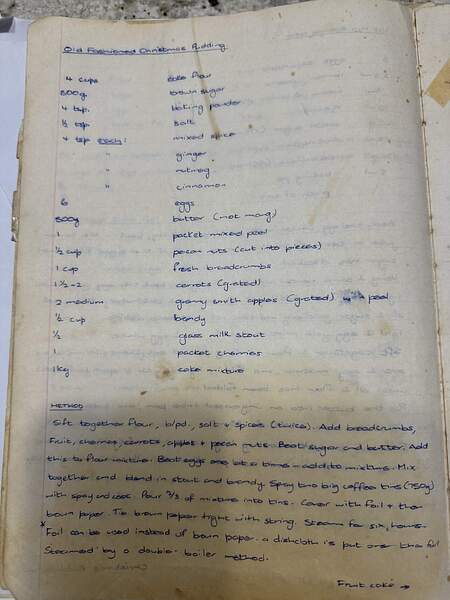 Old Fashioned Christmas Pudding
4 cups cake flour
500g brown sugar
4 tsp. baking powder
½ tsp salt
4 tsp each: mixed spice
" ginger
" nutmeg
" cinnamon
6 eggs
500g butter (not marg)
1 packet mixed peel
½ cup pecan nuts (cut into pieces)
1 cup fresh breadcrumbs
1½-2 carrots (grated)
2 medium granny smith apples (grated) peel
½ cup brandy
½ glass milk stout
1 packet cherries
1kg cake mixture
METHOD
Sift together flour, b/pd., salt + spices (twice). Add breadcrumbs,
Fruit, cherries, carrots, apples + pecan nuts. Beat sugar and butter. Add
this to flour mixture. Beat eggs one at a time - add to mixture. Mix
together and blend in stout and brandy. Spray two big coffee tins (750g)
with spray and cook. Pour ⅔ of mixture into tins. Cover with foil + then
brown paper. Tie brown paper tight with string. Steam for six hours.
* Foil can be used instead of brown paper. a dishcloth is put over the foil
Steamed by a double-boiler method.
Fruit cake →